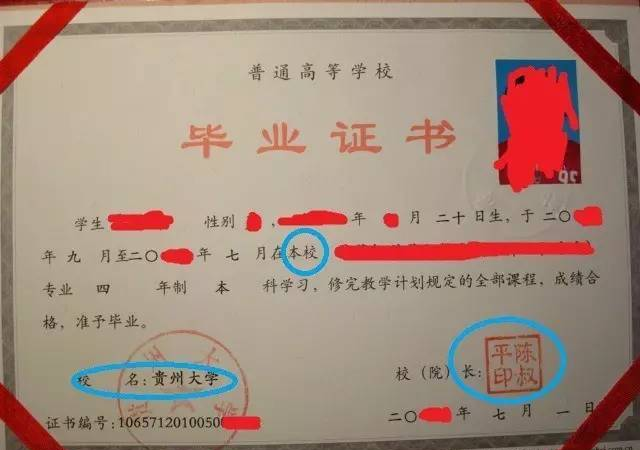 普通高等学校
毕业证书
学生 性别 , 年 月二十日生，于二〇
年九月至二〇 年七月在本校
专业四年制本科学习，修完教学计划规定的全部课程，成绩合
格，准予毕业。
校名：贵州大学
校（院）长：
陈叔平印
证书编号：1065712010050
二〇 年七月一日